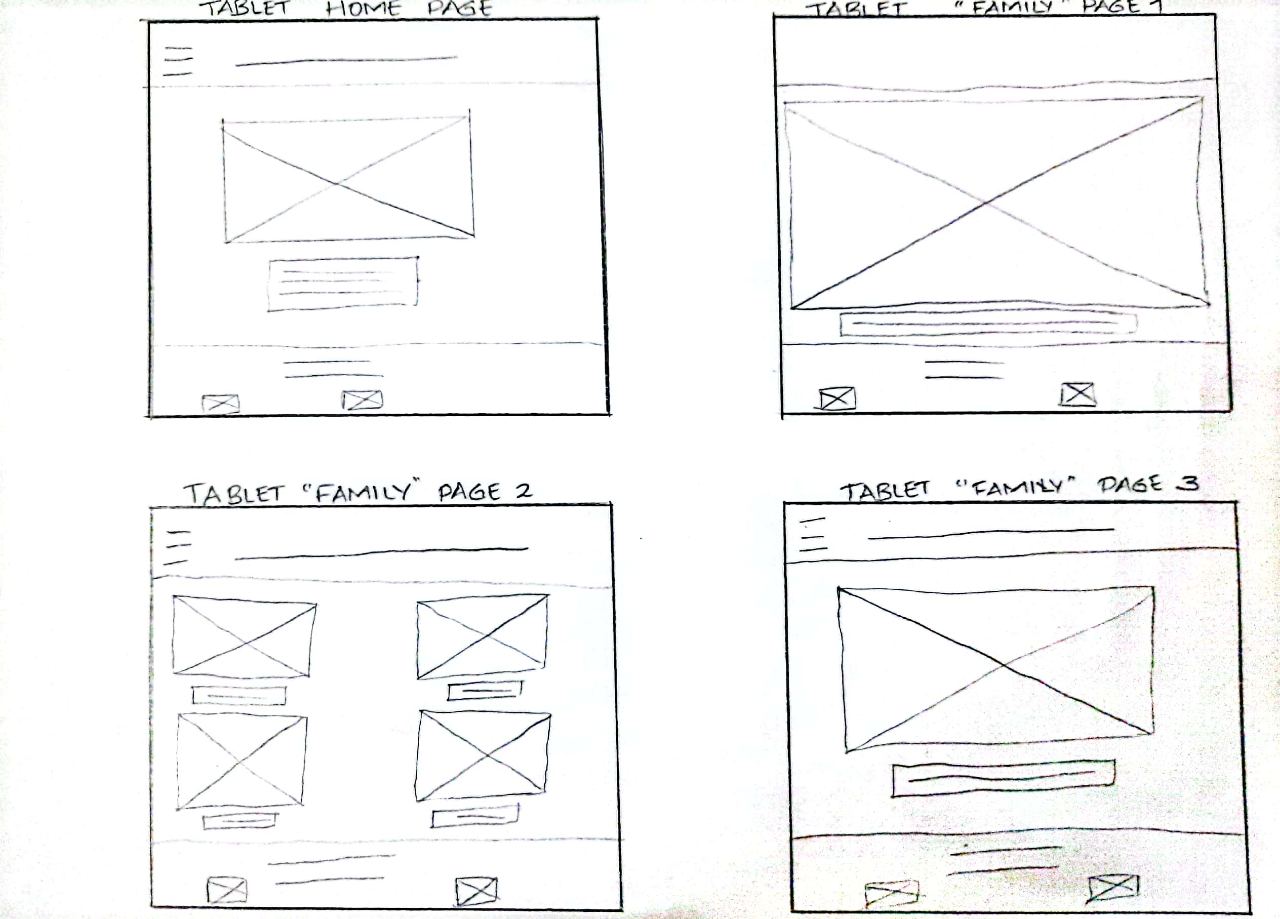 TABLET HOME PAGE
TABLET "FAMILY" PAGE 1
TABLET "FAMILY" PAGE 2
TABLET "FAMILY" PAGE 3